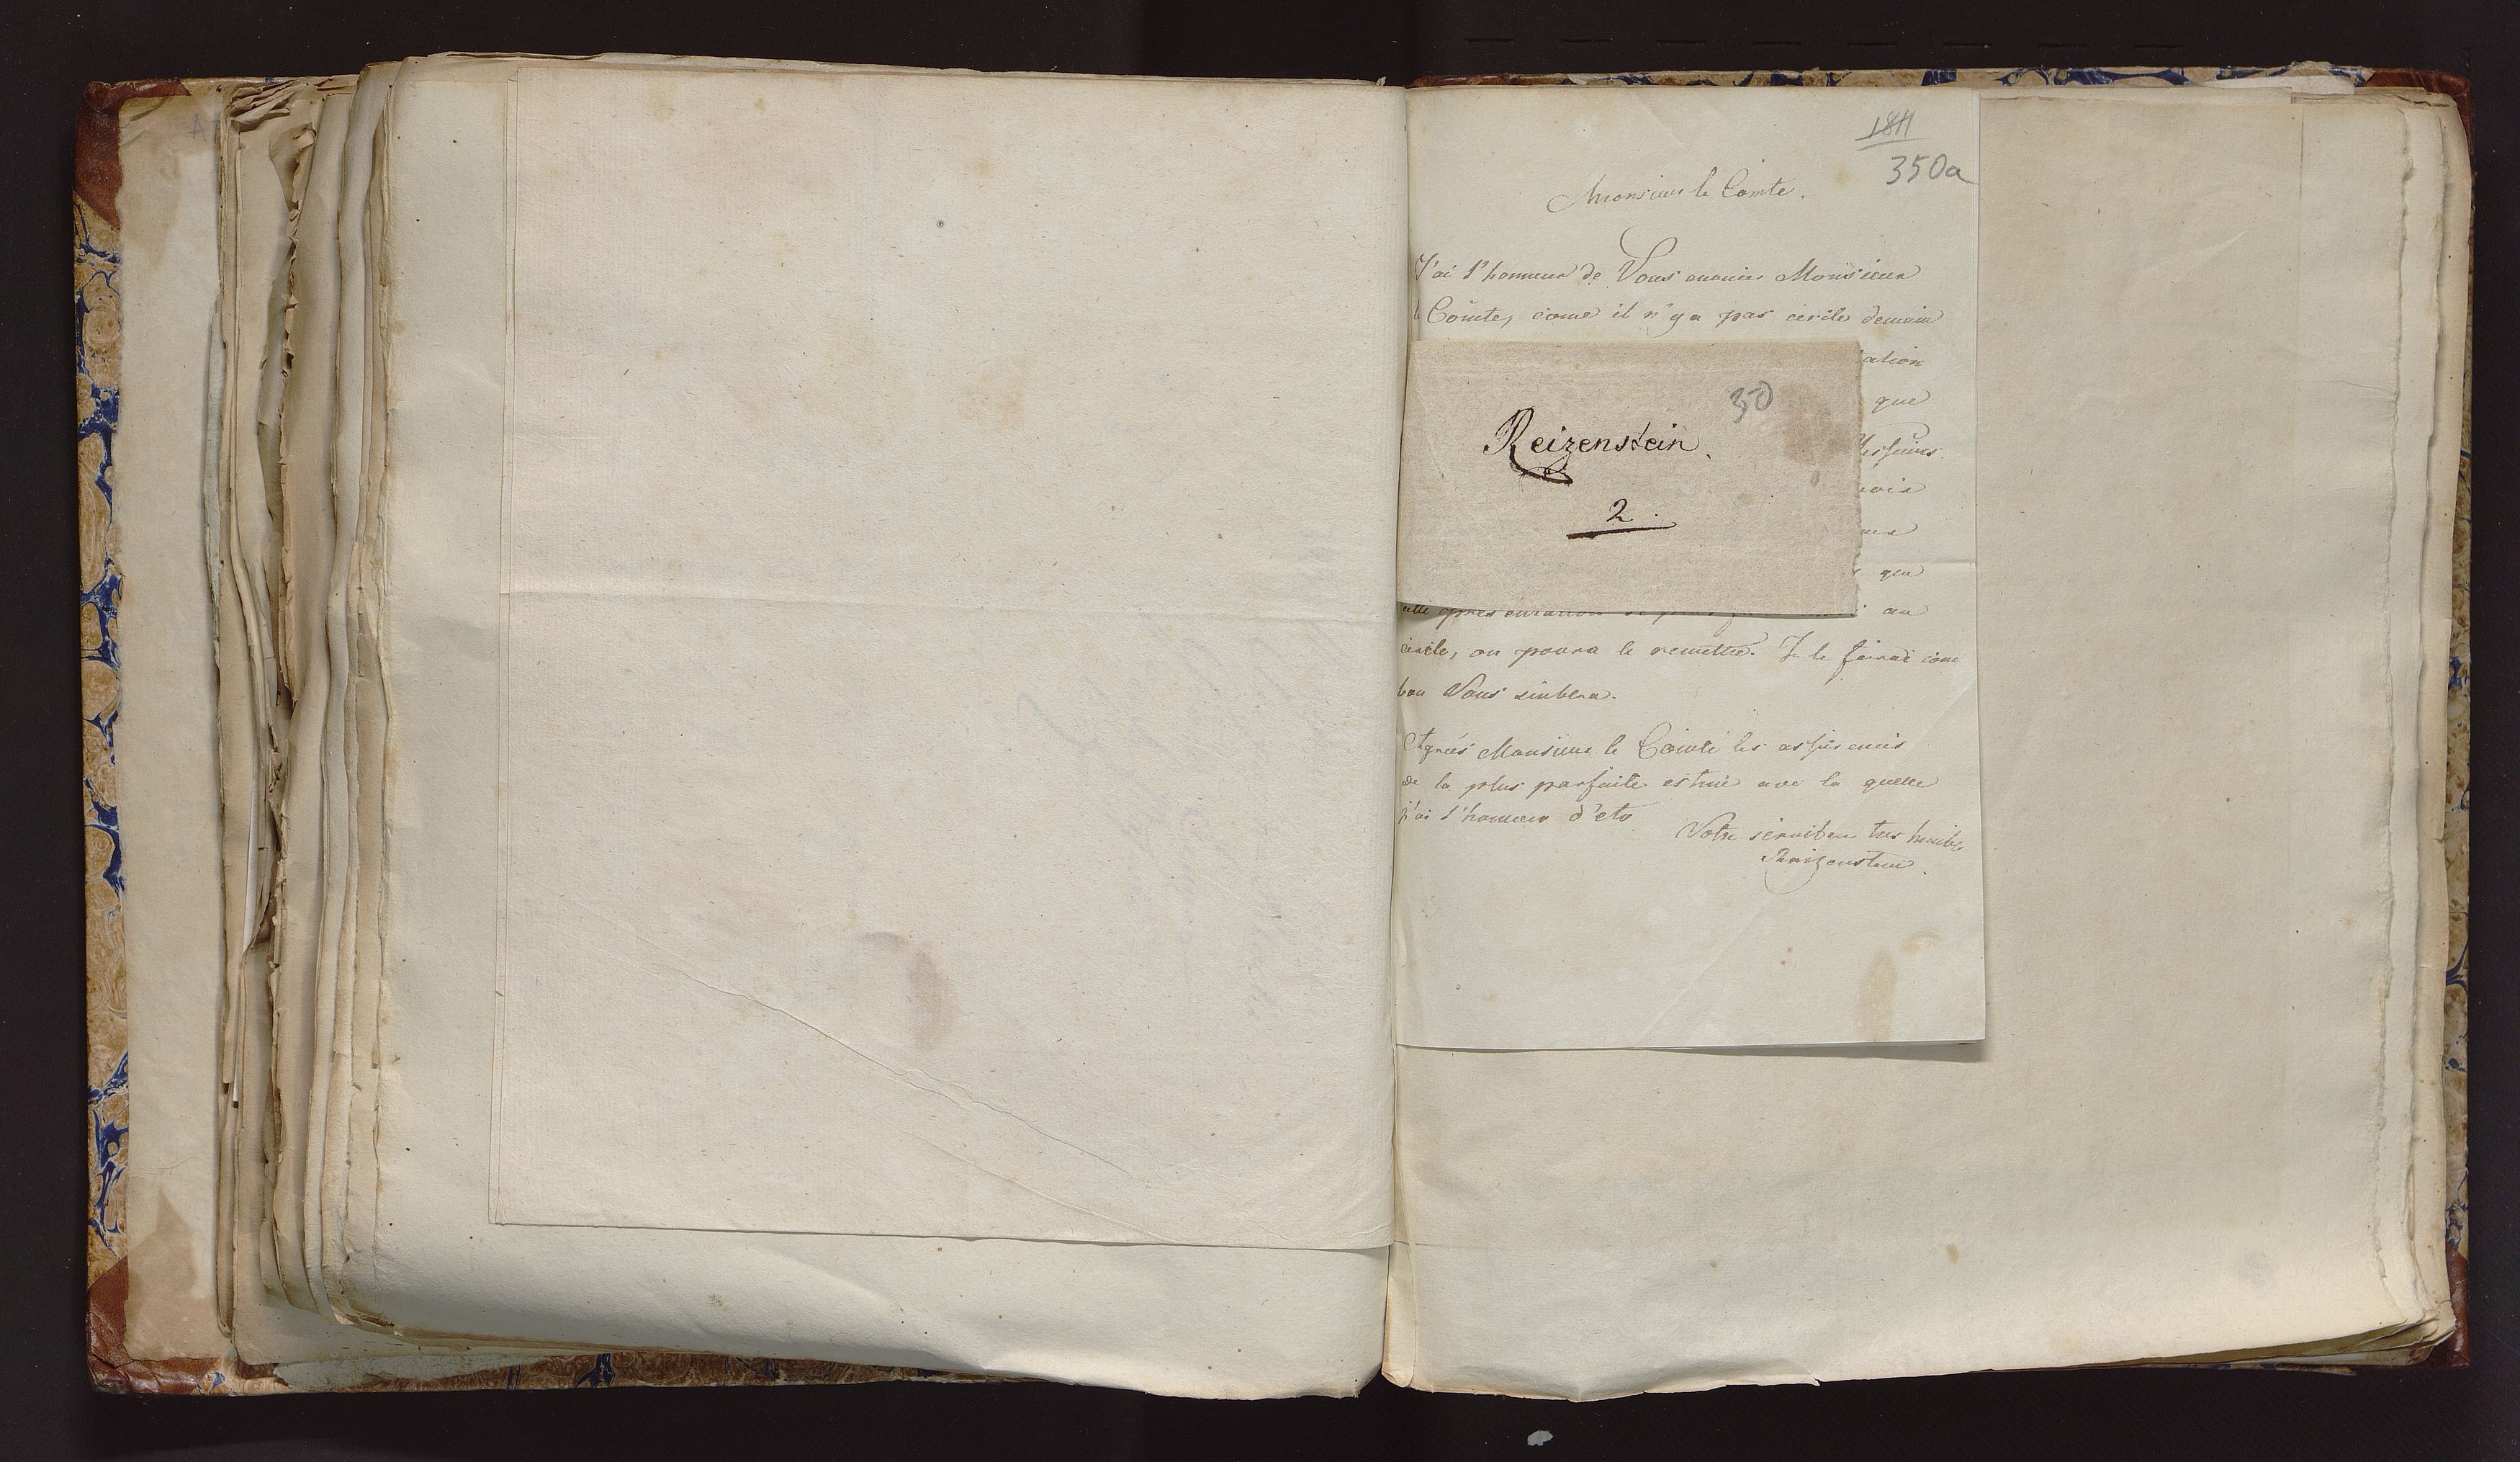 1811
350a
Monsieur le Comte.
J'ai l'honneur de Vous anoncer Monsieur
le Comte, come il n'y a pas cercle demain
ation
que
30
Reizenstein.
2.
voir
qu
au
cercle, on poura le remettre. Je le ferrai come
bon Vous semblera.
Agréés Monsieur le Comte les assurences
de la plus parfaite estime avec la quelle
j'ai l'honneur d'etre
Votre serviteur tres humble
Reizenstein.